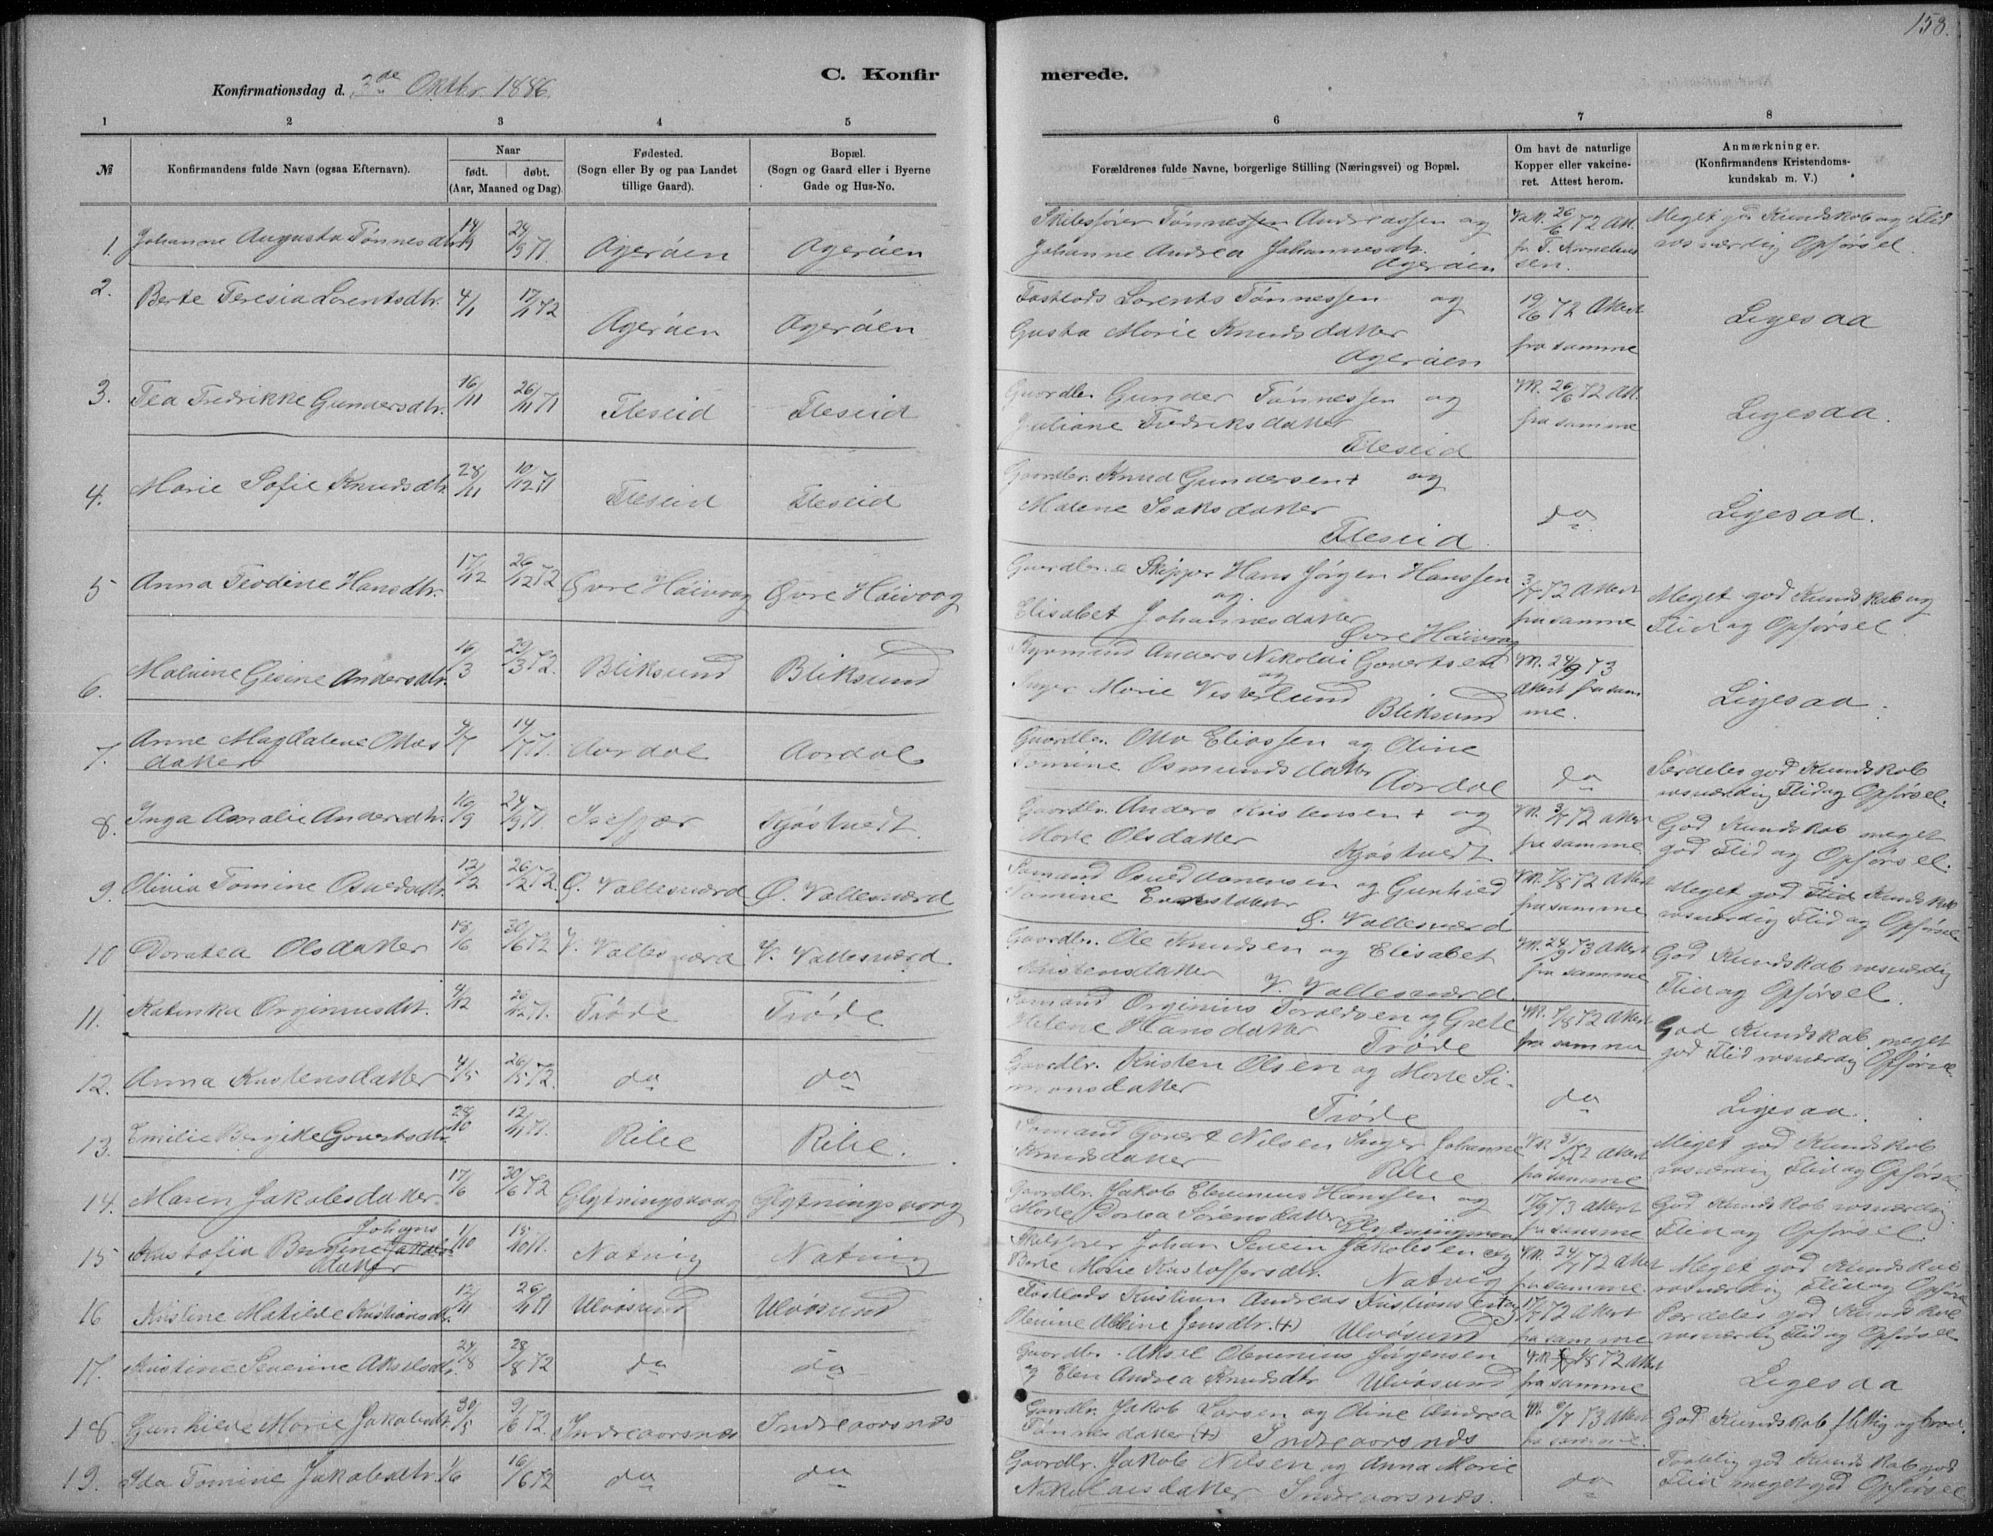 158.
C. Konfir merede.
Konfirmationsdag d. 3de Oktbr. 1886.
1 2 3 4 5 6 7 8
№
Konfirmandens fulde Navn (ogsaa Efternavn).
Naar
født. døbt.
(Aar, Maaned og Dag).
Fødested.
(Sogn eller By og paa Landet
tillige Gaard).
Bopæl.
(Sogn og Gaard eller i Byerne
Gade og Hus-No.
Forældrenes fulde Navne, borgerlige Stilling (Næringsvei) og Bopæl.
Om havt de naturlige
Kopper eller vakcine-
ret. Attest herom.
Anmærkninger.
(Konfirmandens Kristendoms-
kundskab m. V.)
1. Johanne Augusta Tønnesdtr. 24/9 71 Agerøen Agerøen
Tønnessen Andreassen og
Johanne Andrea Johannesdtr.
Agerøen
26/6 72 Att.
Meget god Kundskab og Flid
rosværdig Opførsel
2. Berte Teresia Lorentsdtr. 4/1 17/1 72 Agerøen Agerøen
Lorents Tønnessen og
Gusta Marie Knudsdatter
Agerøen
19/6 72 Attest
fra samme
Ligesaa
3. Tea Fredrikke Gundersdtr. 16/11 26/11 71 Fleseid Fleseid
Gaardbr. Gunder Tønnessen og
Juliane Fredriksdatter
Fleseid
26/6 72 Att.
fra samme
Ligesaa.
4. Marie Sofie Knudsdtr. 28/11 10/12 71 Fleseid Fleseid
Gaardbr. Knud Gundersen + og
Malene Isaksdatter
Fleseid.
do
Ligesaa.
5 Anna Teodine Hansdtr. 17/12 26/12 72 Øvre Høivaag Øvre Høivaag
Gaardbr. e Skipper Hans Jørgen Hanssen
og
Elisabet Johannesdatter
Øvre Høivaag
3/7 72 Attest
fra samme
Meget god Kundskab og
Flid og Opførsel
6. Malvine Gesine Andersdtr. 16/3 29/3 72. Bliksund Bliksund
Anders Nikolai Govertsen
og
Inger Marie Vesterlund
Bliksund
24/9 73
Attest fra sam
me.
Ligesaa.
7. Anne Magdalene Ottos
datter 14/7 71. Aardal Aardal
Gaardbr. Otto Eliassen og Oline
Tomine Osmundsdatter
Aardal
do
Særdeles god Kundskab
rosværdig Flid og Opførsel.
8. Inga Amalie Andersdtr. 24/9 71. Isefjær Kjøstvedt.
Gaardbr. Anders Kristensen + og
Marte Olsdatter
Kjøstvedt
3/7 72 Attest
fra samme
God Kundskab meget
god Flid og Opførsel.
9. Olivia Tomine 12/2 26/2 72. Ø. Vallesværd Ø. Vallesværd
og Gunhild
Tomine
Ø. Vallesværd
7/8 72 Attest
fra samme
Meget god Kundskab
rosværdig Flid og Opførsel
10 Doratea Olsdatter 18/6 30/6 72 V. Vallesværd V. Vallesværd
Gaardbr. Ole Knudsen og Elisabet
Kristensdatter
V. Vallesværd.
24/9 73 Attest
fra samme
God Kundskab rosværdig
Flid og Opførsel.
11. Katinka Orginiusdt. 26/12 71. Trøde Trøde
Sømand Orginius og Grete
Helene Hansdatter
Trøde
7/8 72 Attest
fra samme
God Kundskab meget
god Flid rosværdig Opførsel
12. Anna Kristensdatter 4/5 26/5 72. do do
Gaardbr. Kristen Olsen og Marte Si-
monsdatter
Trøde
do
Ligesaa.
13. Emilie Bergitte Govertsdtr. 28/10 12/11 71. Rilie Rilie.
Sømand Govert Nilsen Inger Johanne
Knudsdatter
Rilie
Attest
fra samme
Meget god Kundskab
rosværdig Flid og Opførsel
14. Maren Jakobsdatter. 17/6 30/6 72 Glytningsvaag Glytningsvaag
Gaardbr. Jakob Elenius Hanssen og
Marte Dortea Sørensdatter
17/9 73 Attest
fra samme
God Kundskab rosværdig
Flid og Opførsel.
15 Kristofia Bertine Johans
datter 1/10 15/10 71. Natvig Natvig
Johan Severin Jakobsen og
Berte Marie Kristoffersdtr.
Natvig
24/7 72 Attest
fra samme.
Meget god Kundskab
rosværdig Flid og Opførsel
16 Kristine Matilde Kristiansdtr. 12/11 26/11 71 Ulvøsund Ulvøsund
Kristian Andreas Kristiansen og
Olemine Jensdtr. (+)
Ulvøsund
17/7 72 Attest
fra samme
Særdeles god Kundskab
rosværdig Flid og Opførsel
17. Kristine Severine Akselsdtr. 24/8 28/8 72 do do
Gaardbr. Aksel Olenius Jørgensen
og Elen Andrea Knudsdtr Ulvøsund
8 72 Attest
fra samme
Ligesaa
18. Gunhilde Marie Jakobsdtr. 30/5 9/6 72. Indreaarsnes Indreaarsnes
Gaardbr. Jakob Larsen og Oline Andrea
Tønnesdatter (+) Indreaarsnes
73 Attest
fra samme.
God Kundskab flittig og brav
19. Ida Tomine Jakobsdtr. 1/6 16/6 72 do do
Gaardbr. Jakob Nilsen og Anna Marie
Nikolaisdatter Indreaarsnes.
do
Taalelig god Kundskab god
Flid meget god Opførsel.